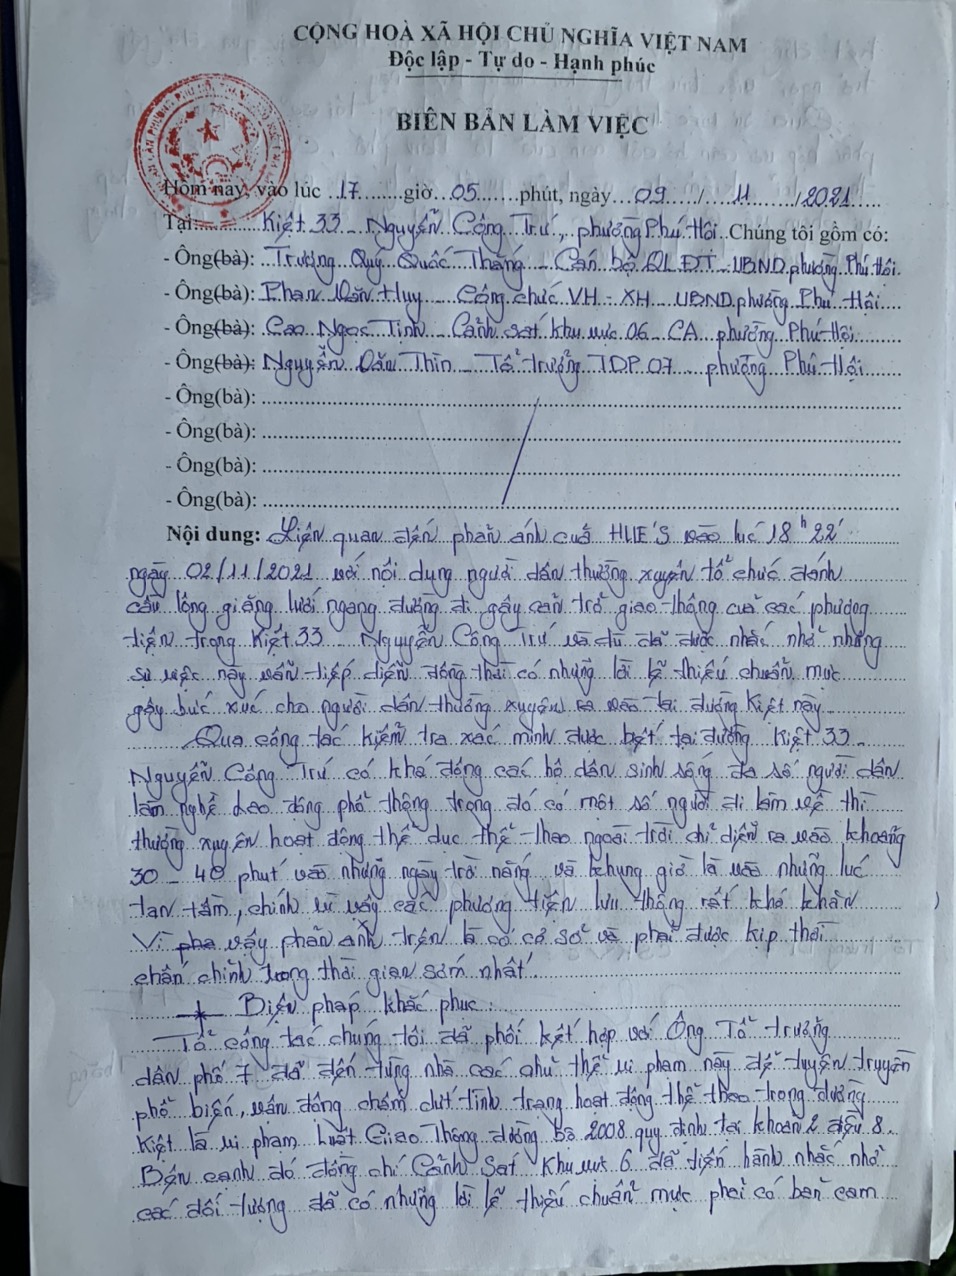 CỘNG HOÀ XÃ HỘI CHỦ NGHĨA VIỆT NAM
Độc lập - Tự do - Hạnh phúc
BIÊN BẢN LÀM VIỆC
Hôm nay, vào lúc 17 giờ 05 phút, ngày 09 / 11 / 2021
Tại: Kiệt 33 Nguyễn Công Trứ, phường Phú Hội. Chúng tôi gồm có:
- Ông(bà): Trương Quý Quốc Thắng - Cán bộ QLĐT - UBND. phường Phú Hội.
- Ông(bà): Phan Văn Huy - Công chức VH - XH - UBND. phường Phú Hội
- Ông(bà): Cao Ngọc Tịnh - Cảnh sát khu vực 06 - CA phường Phú Hội
- Ông(bà): Nguyễn Văn Thìn - Tổ trưởng TDP 07 phường Phú Hội
- Ông(bà):
- Ông(bà):
- Ông(bà):
- Ông(bà):
Nội dung: Liên quan đến phản ánh của HUE'S vào lúc 18h 22'
ngày 02/11/2021 với nội dung người dân thường xuyên tổ chức đánh
cầu lông giăng lưới ngang đường đi gây cản trở giao thông của các phương
tiện trong Kiệt 33 - Nguyễn Công Trứ và dù đã được nhắc nhở nhưng
sự việc này vẫn tiếp diễn đồng thời có những lời lẽ thiếu chuẩn mực
gây bức xúc cho người dân thường xuyên ra vào tại đường Kiệt này
Qua công tác kiểm tra xác minh được biết tại đường Kiệt 33 -
Nguyễn Công Trứ có khá đông các hộ dân sinh sống đa số người dân
làm nghề Lao động phổ thông trong đó có một số người đi làm về thì
thường xuyên hoạt động thể dục thể thao ngoài trời chỉ diễn ra vào khoảng
30 - 40 phút vào những ngày trời nắng và khung giờ là vào những lúc
tan tầm, chính vì vậy các phương tiện lưu thông rất khó khăn
Vì vậy phản ánh trên là có cơ sở và phải được kịp thời
chấn chỉnh trong thời gian sớm nhất.
+ Biện pháp khắc phục:
Tổ công tác chúng tôi đã phối kết hợp với Ông Tổ trưởng
dân phố 7 đã đến từng nhà các chủ thể vi phạm này để tuyên truyền
phổ biến, vận động chấm dứt tình trạng hoạt động thể thao trong đường
Kiệt là vi phạm Luật Giao Thông đường bộ 2008 quy định tại khoản 2 điều 8.
Bên cạnh đó đồng chí Cảnh Sát Khu vực 6 đã tiến hành nhắc nhở
các đối tượng đã có những lời lẽ thiếu chuẩn mực phải có bản cam